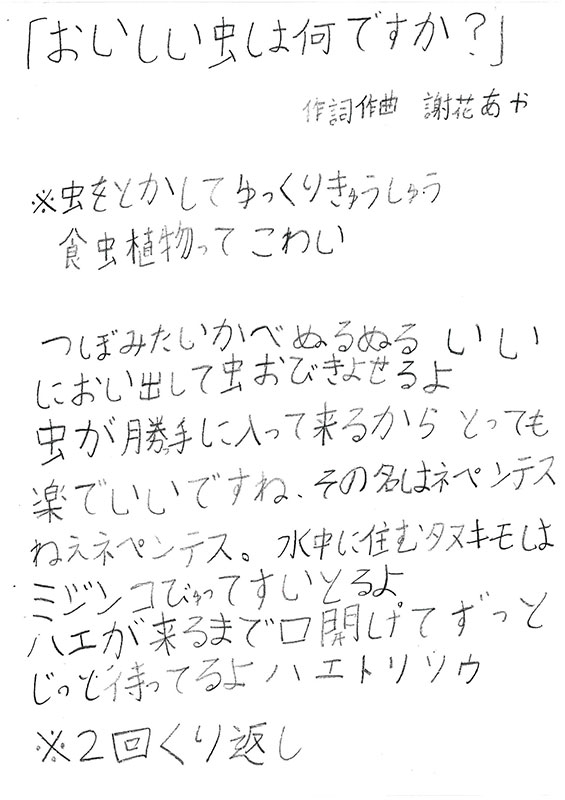 「おいしい虫は何ですか?」
作詞作曲 謝花あか
※虫をとかしてゆっくりきゅうしゅう
食虫植物って こわい
つぼみたいかべぬるぬる いい
におい出して虫おびきよせるよ
虫が勝手に入って来るから とっても
楽でいいですね、その名はネペンテス
ねえネペンテス。水中に住むタヌキモは
ミジンコびゅってすいとるよ
ハエが来るまで口開けてずっと
じっと待ってるよ ハエトリソウ
※2回くり返し